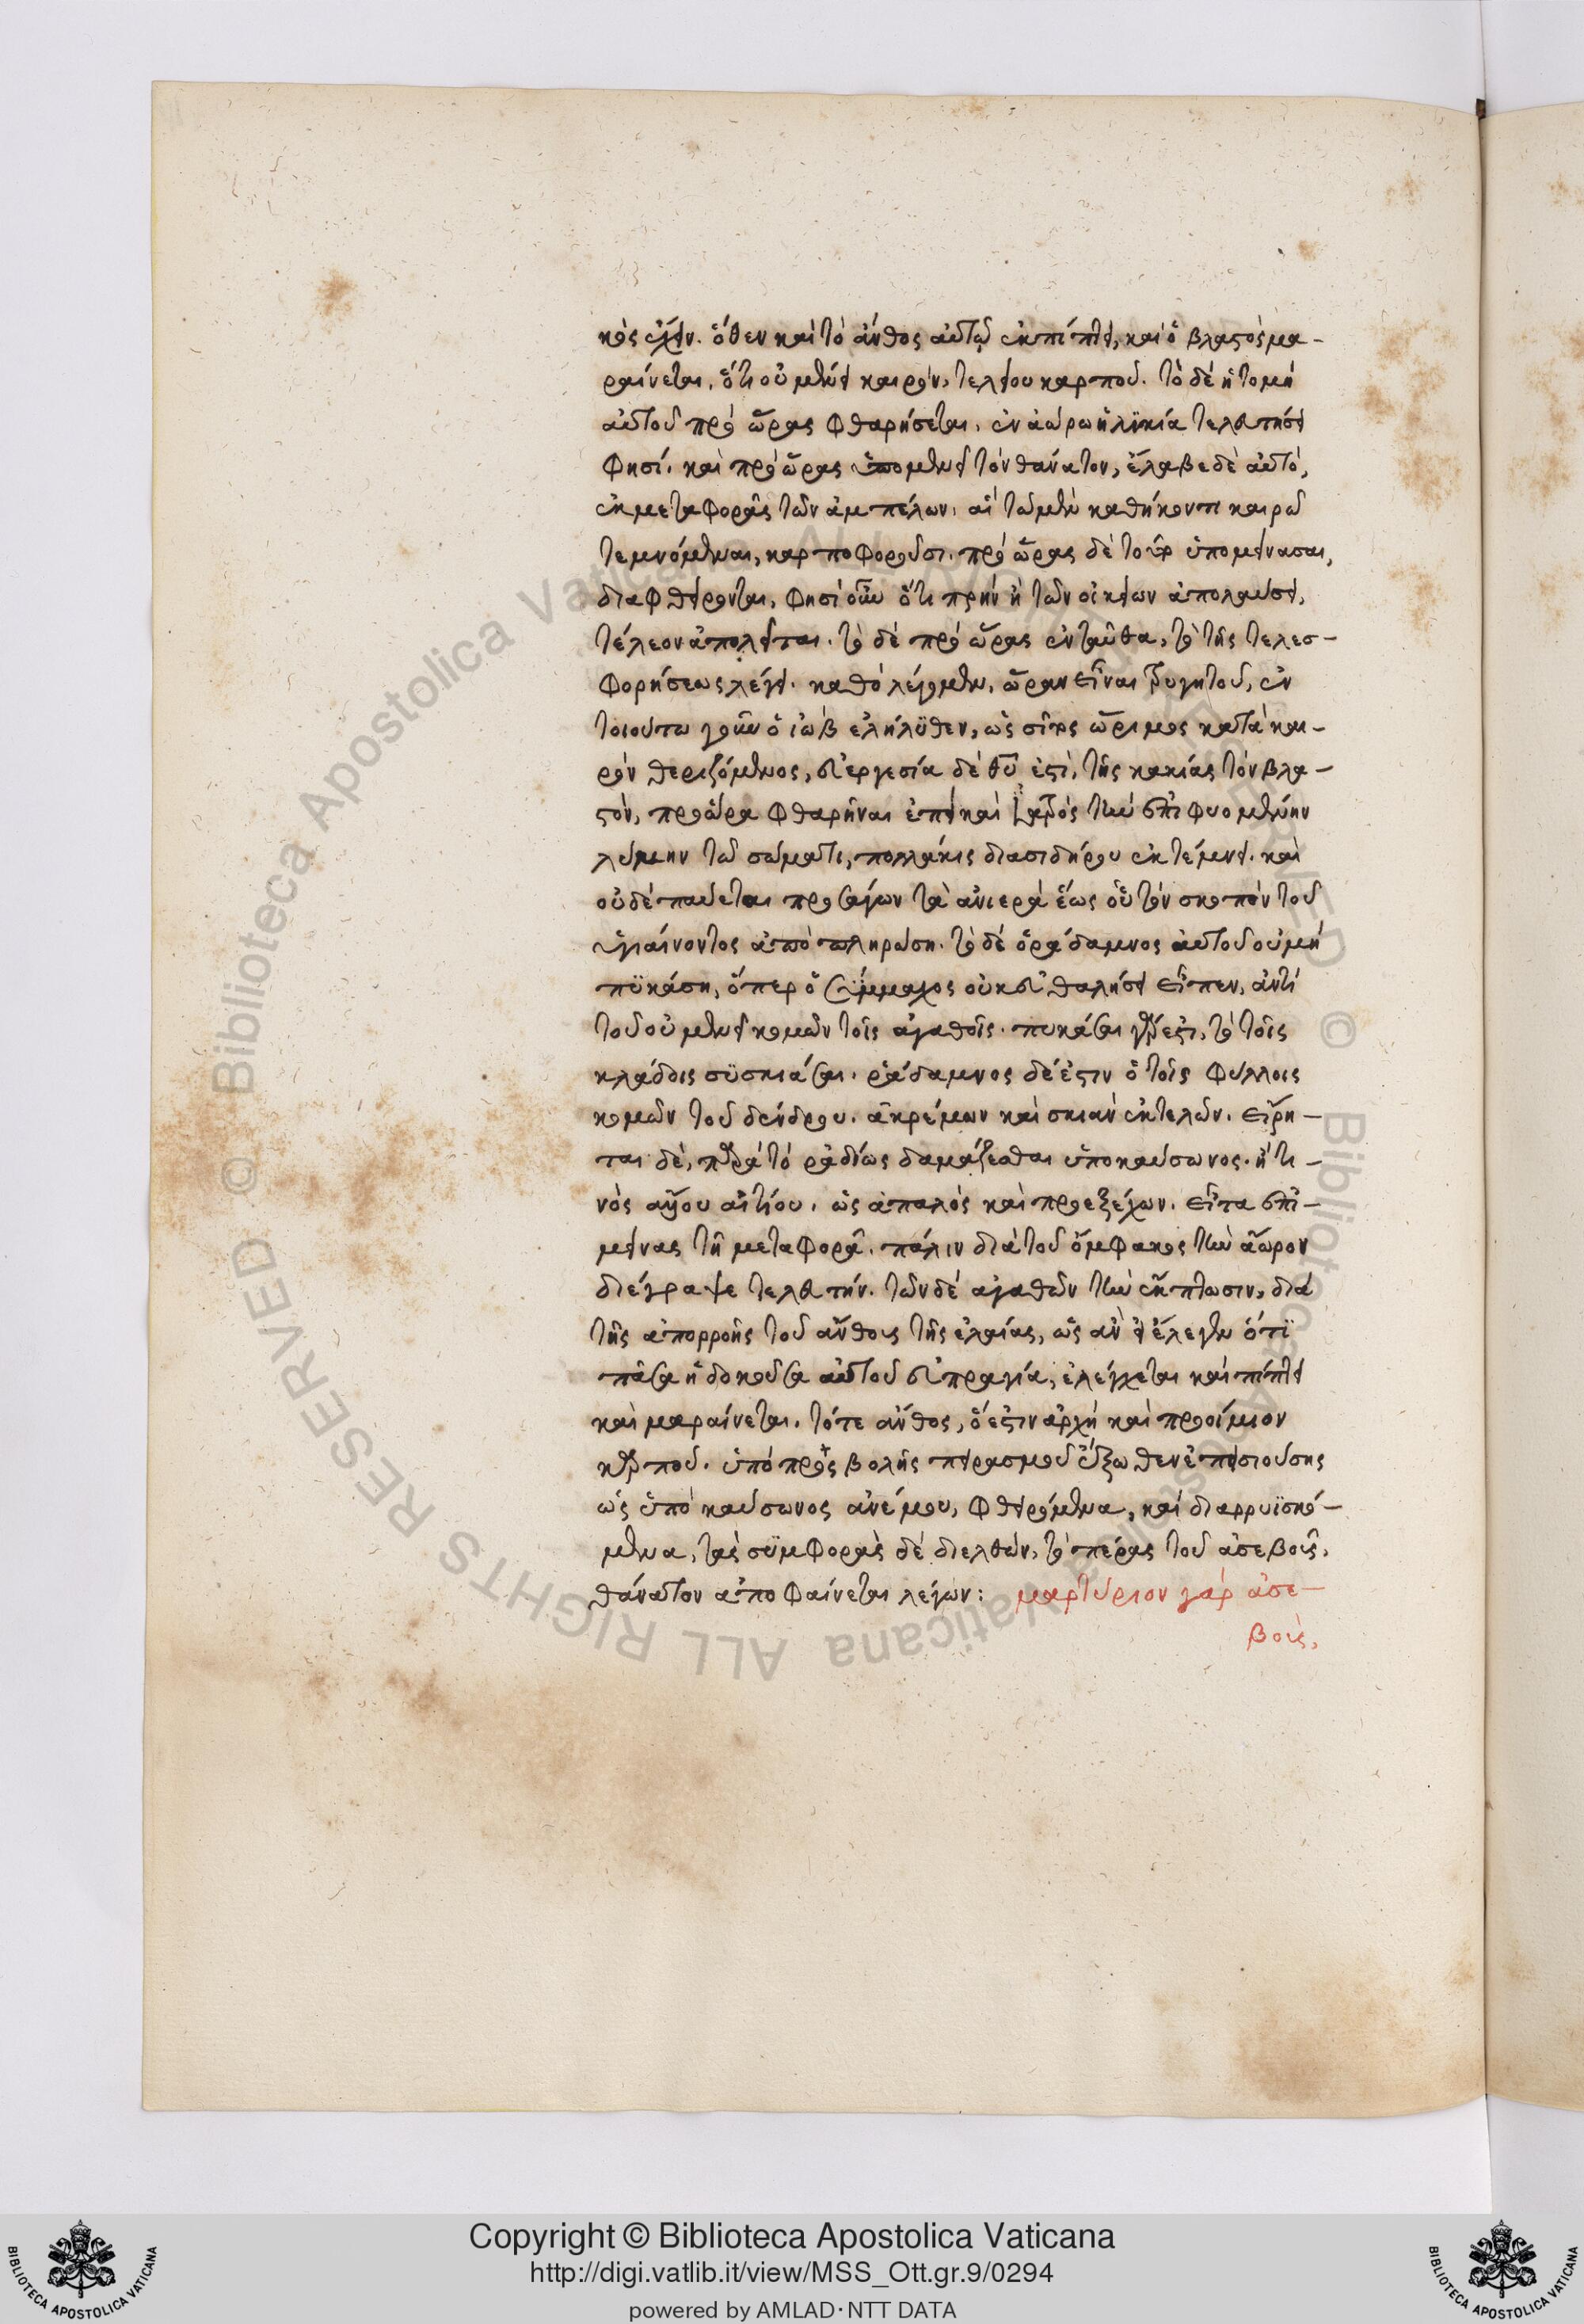 κὸς ἔχειν. ὅθεν καὶ τὸ ἄνθος αὐτῷ ἐκπίπτει, καὶ ὁ βλαστὸς μα-
ραίνεται, ὅτι οὐ μένει καιρὸν, τελείου καρποῦ. τὸ δὲ ἡ τομὴ
αὐτοῦ πρὸ ὥρας φθαρήσεται, ἐν ἀώρω ἡλικία τελευτήσει
φησί. καὶ πρὸ ὥρας ὑπομένει τὸν θάνατον, ἔλαβε δὲ αὐτὸ,
ἐκ μεταφορᾶς τῶν ἀμπέλων, αἳ τῶ μὲν καθήκοντι καιρῶ
τεμνόμεναι, καρποφοροῦσι. πρὸ ὥρας δὲ τοῦτο ὑπομείνασαι,
διαφθείρονται, φησὶ οὖν ὅτι πρὶν ἢ τῶν οἰκείων ἀπολαύσει,
τέλεον ἀπολεῖται. τὸ δὲ πρὸ ὥρας ἐνταῦθα, τὸ τῆς τελεσ-
φορήσεως λέγει. καθὸ λέγομεν, ὥραν εἶναι τρυγητοῦ, ἐν
τοιούτω γοῦν ὁ ἰὼβ ἐλήλυθεν, ὡς σῖτος ὥριμος κατὰ και-
ρὸν θεριζόμενος, εὐεργεσία δὲ θῦ ἐστὶ, τῆς κακίας τὸν βλα-
στὸν, πρὸ ὥρα φθαρῆναι ἐπεὶ καὶ ἰατρὸς τὴν ἐπιφυομένην
λύμην τῶ σώματι, πολλάκις διασιδήρου ἐκτέμνει. καὶ
οὐδὲ παύεται προσάγων τὰ ἀνιερὰ ἕως οὗ τὸν σκοπὸν τοῦ
ὑγιαίνοντος ἀποπληρώση. τὸ δὲ ὁράδαμνος αὐτοῦ οὐ μὴ
πϋκάση, ὅπερ ὁ σύμμαχος οὐκ εὐθαλήσει εἶπεν, ἀντὶ
τοῦ οὐ μενεῖ κομῶν τοῖς ἀγαθοῖς. πυκάσαι γάρ ἐστι, τὸ τοῖς
κλάδοις συσκιάσαι. ῥάδαμνος δέ ἐστιν ὁ τοῖς φύλλοις
κομῶν τοῦ δένδρου. ἀκρέμων καὶ σκιὰν ἐκτελῶν. εἴρη-
ται δὲ, παρὰ τὸ ῥαδίως δαμάζεσθαι ὑπὸ καύσωνος. ἤ τι-
νὸς ἄλλου αἰτίου. ὡς ἁπαλὸς καὶ προεξέχων. εἶτα ἐπι-
μείνας τῆ μεταφορᾶ. πάλιν διὰ τοῦ ὄμφακος τὴν ἄωρον
διέγραψε τελευτήν. τῶν δὲ ἀγαθῶν τὴν ἔκπτωσιν, διὰ
τῆς ἀπορροῆς τοῦ ἄνθους τῆς ἐλαίας, ὡς ἂν εἰ ἔλεγεν ὅτι
πᾶσα ἡ δοκοῦσα αὐτοῦ εὐπραγία, ἐλέγχεται καὶ πίπτει
καὶ μαραίνεται. τό τε ἄνθος, ὅ ἐστιν ἀρχὴ καὶ προοίμιον
καρποῦ. ὑπὸ προσβολῆς πειρασμοῦ ἔξωθεν ἐπεισιούσης
ὡς ὑπὸ καύσωνος ἀνέμου, φθειρόμενα, καὶ διαρρυϊσκό-
μενα, τὰς συμφορὰς δὲ διελθὼν, τὸ πέρας τοῦ ἀσεβοῦς,
θάνατον ἀποφαίνεται λέγων: μαρτύριον γὰρ ἀσε-
βοῦς,
Copyright © Biblioteca Apostolica Vaticana
http://digi.vatlib.it/view/MSS_Ott.gr.9/0294
powered by AMLAD·NTT DATA
© Biblioteca Apostolica Vaticana ALL RIGHTS RESERVED
BIBLIOTECA APOSTOLICA VATICANA
BIBLIOTECA APOSTOLICA VATICANA